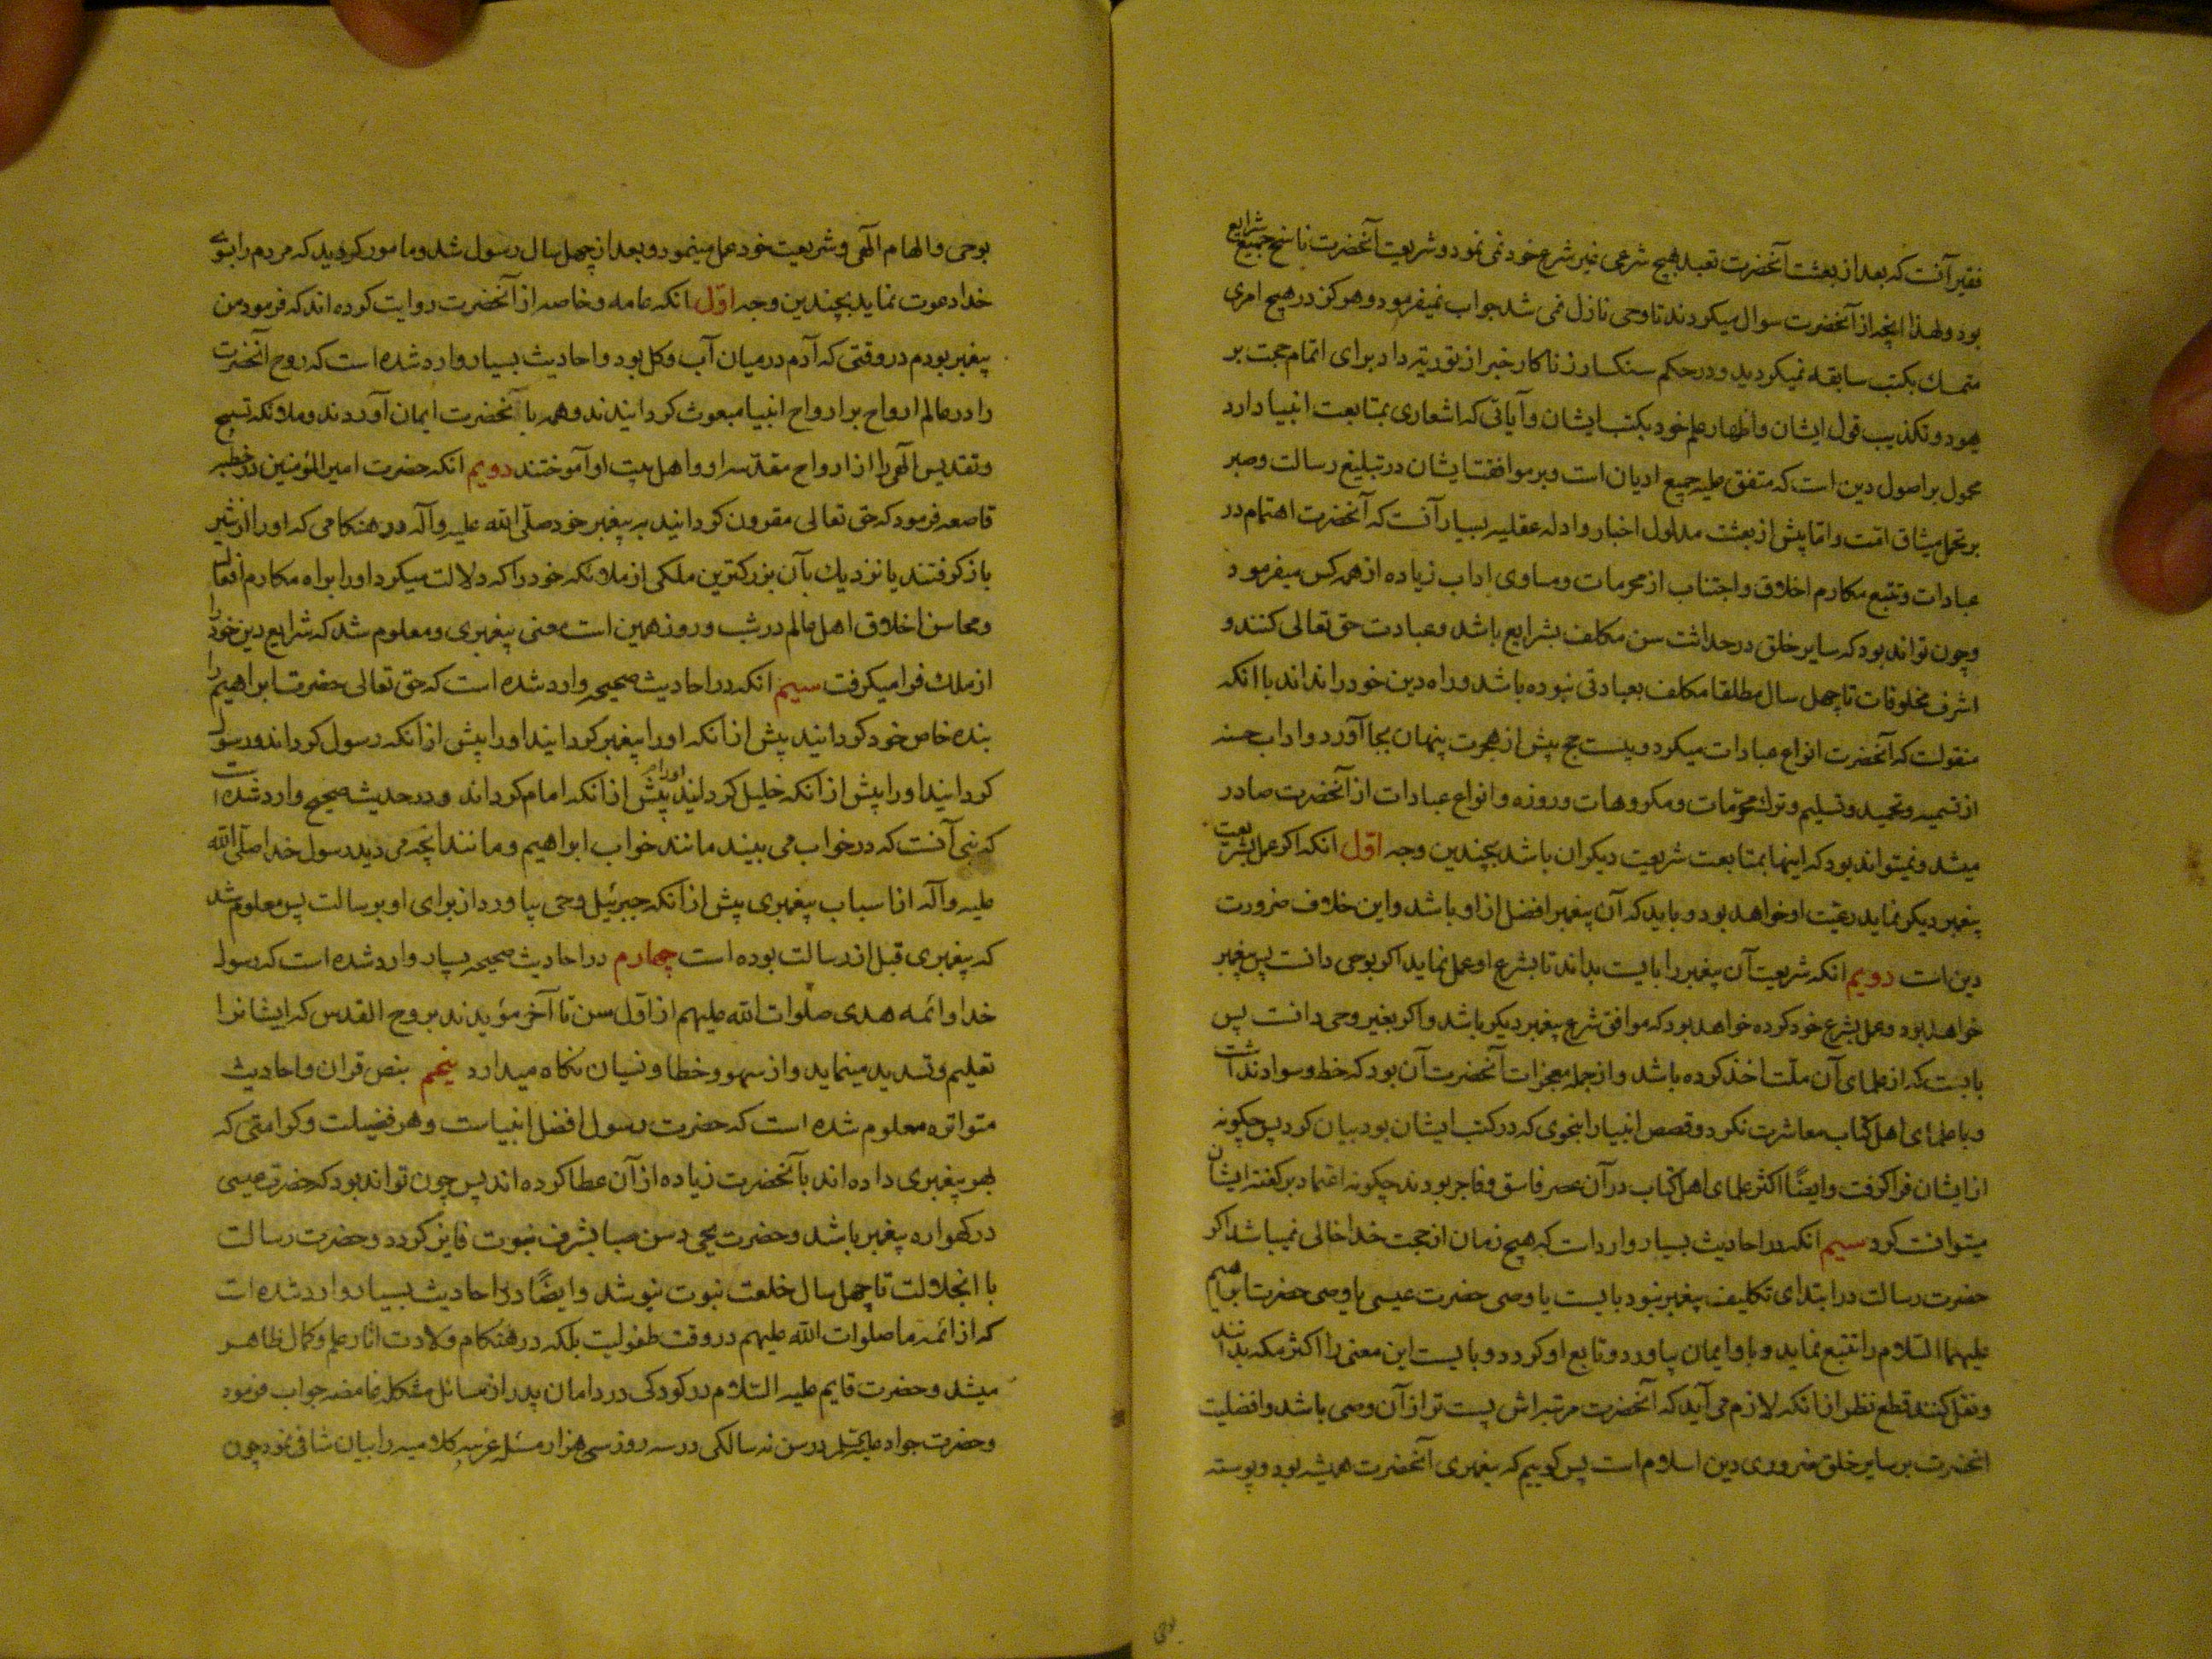 فقیر آنست که بعد از بعثت آنحضرت تعبد بهیچ شرعی غیر شرع خود نمی نمود و شریعت آنحضرت ناسخ جمیع شرایع
بود ولهذا انچه از آنحضرت سوال میکردند تا وحی نازل نمی شد جواب نمیفرمود و هرکز در هیچ امری
متمسك بکتب سابقه نمیکردید و در حکم سنکسار زناکار خبر از توریة داد برای اتمام حجت بر
یهود و تکذیب قول ایشان و اظهار علم خود بکتب ایشان و آیاتی که اشعاری بمتابعت انبیا دارد
محمول بر اصول دین است که متفق علیه جمیع ادیان است و بر موافقت ایشان در تبلیغ رسالت و صبر
بر تحمل میشاق امت و اما پیش از بعثت مدلول اخبار و ادله عقلیه بسیار آنست که آنحضرت اهتمام در
عبادات و تتبع مکارم اخلاق و اجتناب از محرمات و مساوی اداب زیاده از همه کس میفرمود
و چون تواند بود که سایر خلق در حداثت سن مکلف بشرایع باشد و عبادت حق تعالی کنند و
اشرف مخلوقات تا چهل سال مطلقا مکلف بعبادتی نبوده باشد و راه دین خود را نداند با انکه
منقولست که آنحضرت انواع عبادات میکرد و بیست حج پیش از هجرت پنهان بجا آورد و اداب حسنه
از تسمیه و تحمید و تسلیم و ترك محرّمات و مکروهات و روزه و انواع عبادات از آنحضرت صادر
میشد و نمیتواند بود که اینها بمتابعت شریعت دیکران باشد بچندین وجه اوّل انکه اکر عمل بشریعت
پیغمبر دیکر نماید رعیّت او خواهد بود و باید که آن پیغمبر افضل از او باشد و این خلاف ضرورت
دین است دویم انکه شریعت آن پیغمبر را بایست بداند تا بشرع او عمل نماید اکر بوحی دانست پس پیغمبر
خواهد بود و عمل بشرع خود کرده خواهد بود که موافق شرع پیغمبر دیکر باشد و اکر بغیر وحی دانست پس
بایست که از علمای آن ملّت اخذ کرده باشد و از جمله معجزات آنحضرت آن بود که خط و سواد نداشت
و با علمای اهل کتاب معاشرت نکرد و قصص انبیا را بنحوی که در کتب ایشان بود بیان کرد پس چکونه
از ایشان فرا کرفت و ایضًا اکثر علمای اهل کتاب در آن عصر فاسق و فاجر بودند چکونه اعتماد بر کفته ایشان
میتوانست کرد سیم انکه در احادیث بسیار وارد است که هیچ زمان از حجت خدا خالی نمیباشد اکر
حضرت رسالت در ابتدای تکلیف پیغمبر نبود بایست یا وصی حضرت عیسی یا وصی حضرت ابراهیم
علیهما السّلام را تتبع نماید و با او ایمان بیاورد و تابع او کردد و بایست این معنی را اکثر مکه بدانند
و نقل کنند قطع نظر از انکه لازم می آید که آنحضرت مرتبه اش پست تر از آن وصی باشد و افضلیت
انحضرت بر سایر خلق ضروری دین اسلام است پس کوییم که پیغمبری آنحضرت همیشه بود و پیوسته
بوحی
بوحی و الهام الهی و شریعت خود عمل مینمود و بعد از چهل سال رسول شد و مامور کردید که مردم را بسوی
خدا دعوت نماید بچندین وجه اوّل انکه عامه و خاصه از آنحضرت روایت کرده اند که فرمود من
پیغمبر بودم در وقتی که آدم در میان آب و کل بود و احادیث بسیار وارد شده است که روح آنحضرت
را در عالم ارواح بر ارواح انبیا مبعوث کردانیدند و همه با آنحضرت ایمان آوردند و ملائکه تسبیح
و تقدیس الهی را از ارواح مقدّسه او و اهل بیت او آموختند دویم انکه حضرت امیر المؤمنین در خطبه
قاصعه فرمود که حق تعالی مقرون کردانید به پیغمبر خود صلّی الله علیه وآله در هنکامی که او را از شیر
باز کرفتند یا نزدیك بآن بزرکترین ملکی از ملائکه خود را که دلالت میکرد او را براه مکارم افعال
و محاسن اخلاق اهل عالم در شب و روز همین است معنی پیغمبری و معلوم شد که شرایع دین خود را
از ملك فرا میکرفت سیم انکه در احادیث صحیحه وارد شده است که حق تعالی حضرت ابراهیم را
بنده خاص خود کردانید پیش از انکه او را پیغمبر کردانید او را پیش از انکه رسول کرداند و رسول
کردانید او را پیش از انکه خلیل کردانید او را پیش از انکه امام کرداند و در حدیث صحیح وارد شده است
که نبی آنست که در خواب می بیند مانند خواب ابراهیم و مانند انچه می دید رسول خدا صلّی الله
علیه وآله از اسباب پیغمبری پیش از انکه جبرئیل وحی بیاورد از برای او برسالت پس معلوم شد
که پیغمبری قبل از رسالت بوده است چهارم در احادیث صحیحه بسیار وارد شده است که رسول
خدا و ائمه هدی صلوات الله علیهم از اوّل سن تا آخر مؤیدند بروح القدس که ایشان را
تعلیم و تسدید مینماید و از سهو و خطا و نسیان نکاه میدارد پنجم بنص قران و احادیث
متواتره معلوم شده است که حضرت رسول افضل انبیاست و هر فضیلت و کرامتی که
بهر پیغمبری داده اند بآنحضرت زیاده از آن عطا کرده اند پس چون تواند بود که حضرت عیسی
در کهواره پیغمبر باشد و حضرت یحیی در سن صبا بشرف نبوت فایز کردد و حضرت رسالت
با انجلالت تا چهل سال خلعت نبوت نپوشد و ایضًا در احادیث بسیار وارد شده است
که از ائمه ما صلوات الله علیهم در وقت طفولیت بلکه در هنکام ولادت اثار علم و کمال ظاهر
میشد و حضرت قایم علیه السّلام در کودکی در دامان پدر از مسائل مشکله غامضه جواب فرمود
و حضرت جواد علیه السلم در سن نه سالکی در سه روز سی هزار مسئله غریبه کلامیه را بیان شافی نمود چون